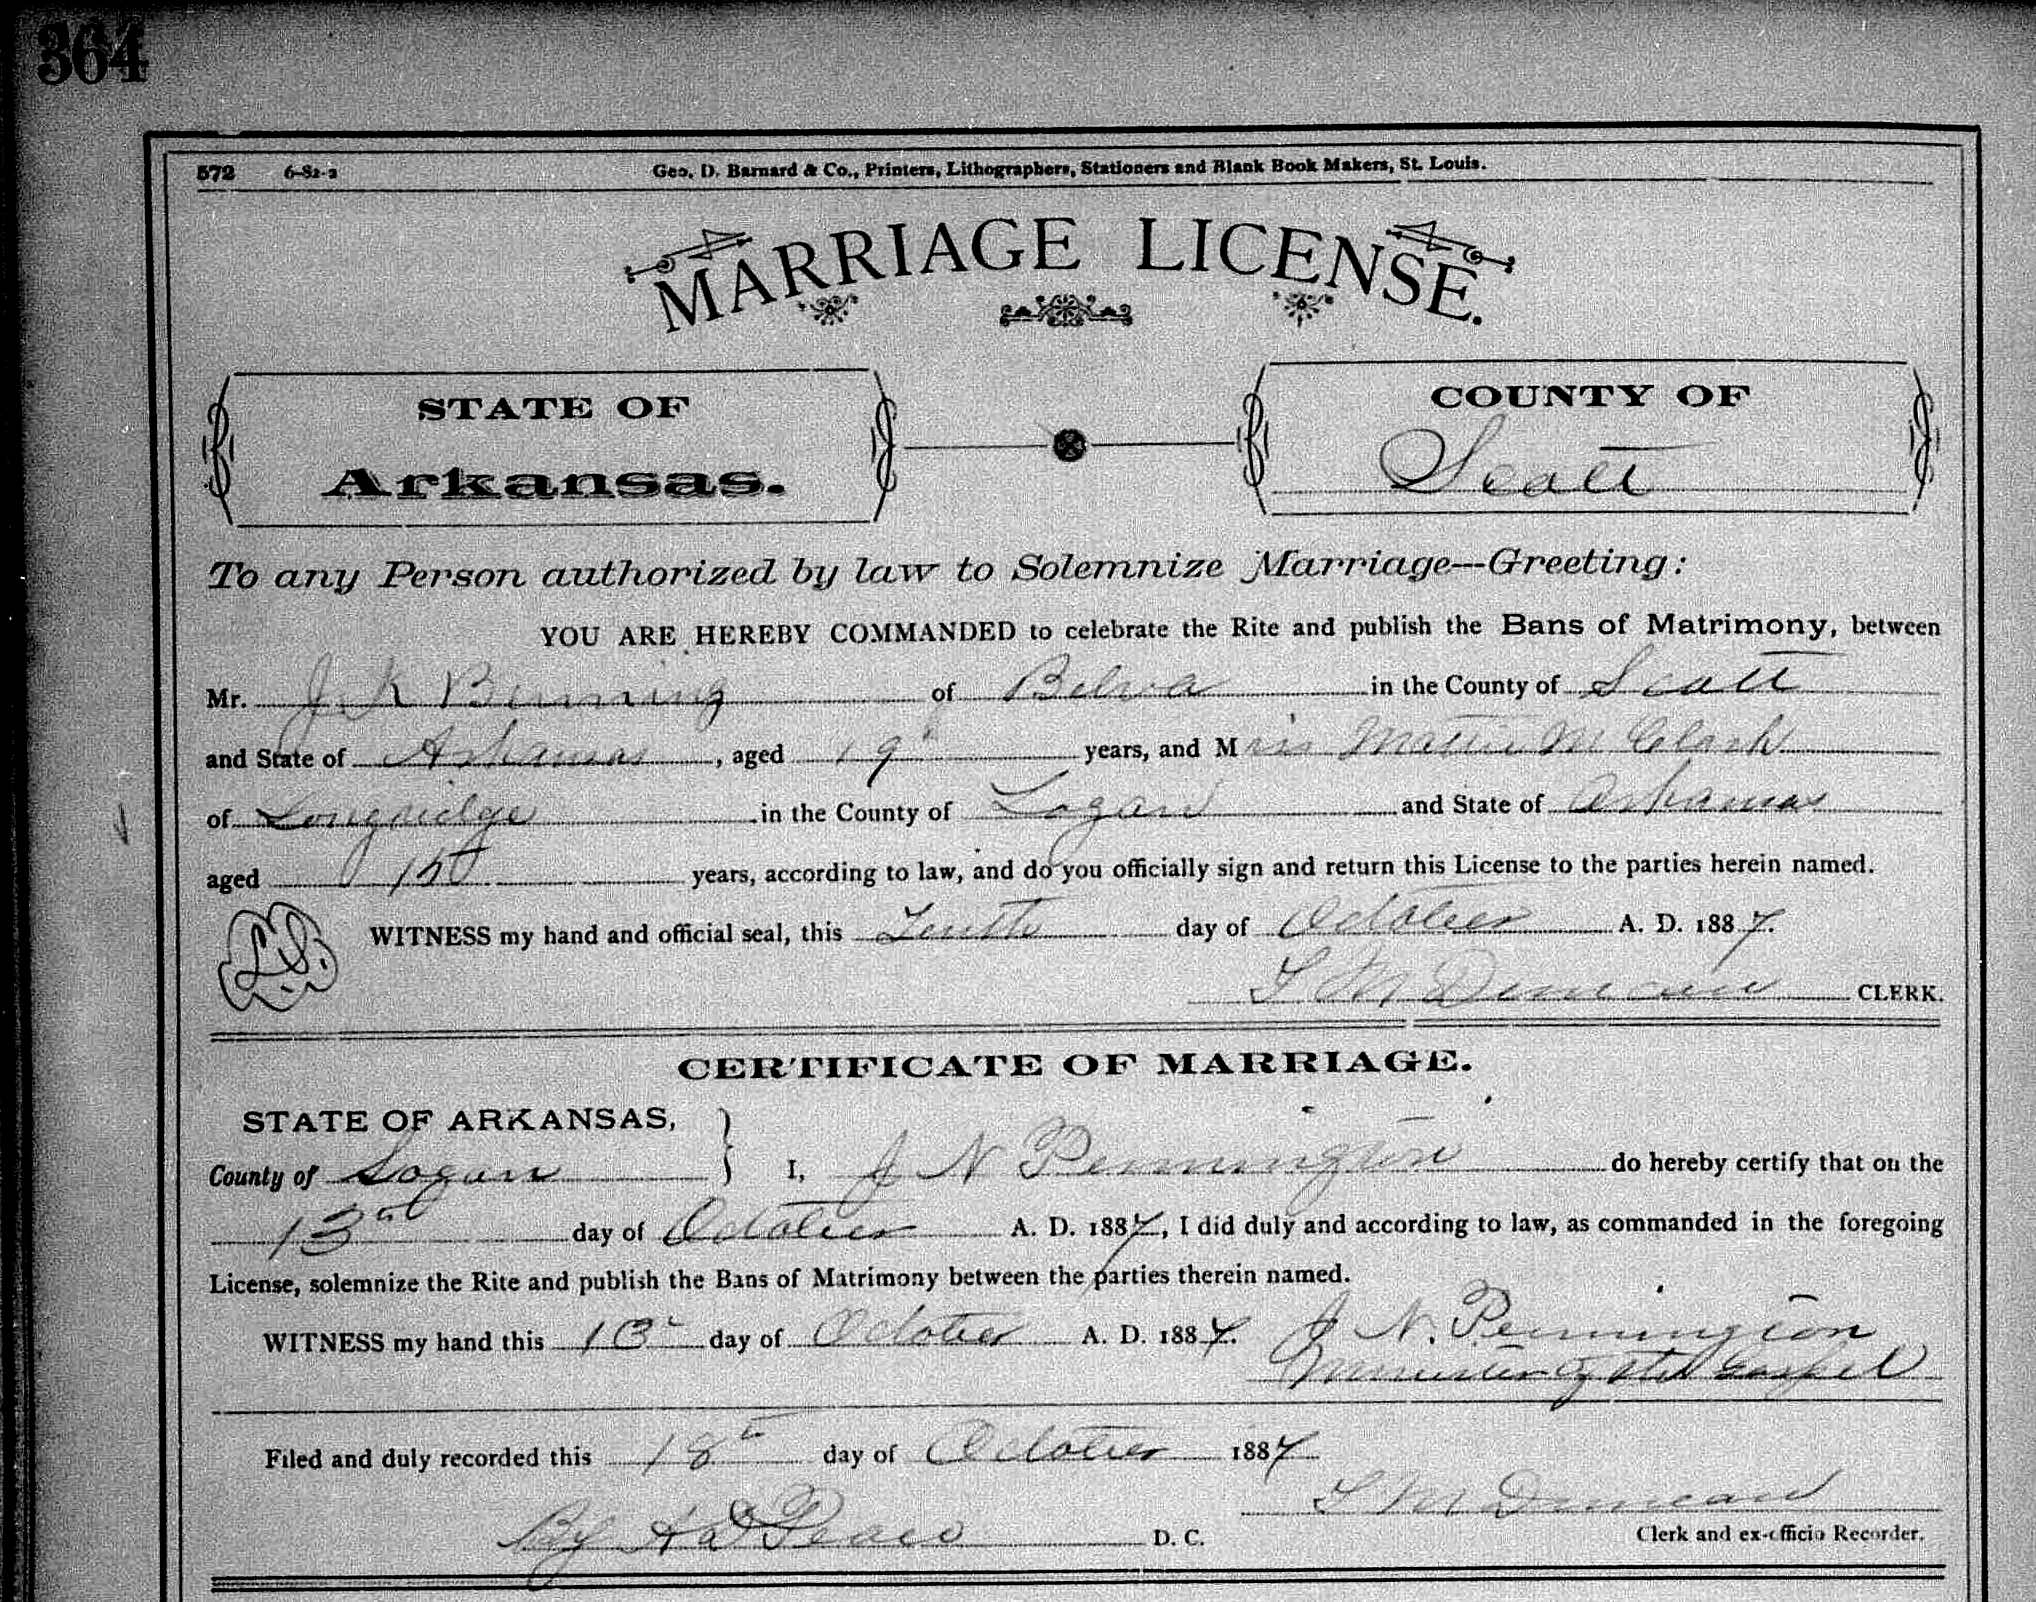 364
572 6-82-2 Geo. D. Barnard & Co., Printers, Lithographers, Stationers and Blank Book Makers, St. Louis.
MARRIAGE LICENSE.
STATE OF
Arkansas.
COUNTY OF
Scott
To any Person authorized by law to Solemnize Marriage---Greeting:
YOU ARE HEREBY COMMANDED to celebrate the Rite and publish the Bans of Matrimony, between
Mr. J. K of Belva in the County of Scott
and State of Arkansas, aged 19 years, and Miss Mattie M Clark
of Longridge in the County of Logan and State of Arkansas
aged 15 years, according to law, and do you officially sign and return this License to the parties herein named.
L.S.
WITNESS my hand and official seal, this Tenth day of October A. D. 1887.
M Duncan CLERK.
CERTIFICATE OF MARRIAGE.
STATE OF ARKANSAS,
County of Logan } I, J N Pennington do hereby certify that on the
13th day of October A. D. 1887, I did duly and according to law, as commanded in the foregoing
License, solemnize the Rite and publish the Bans of Matrimony between the parties therein named.
WITNESS my hand this 13 day of October A. D. 1887. J N. Pennington
Minister of the Gospel
Filed and duly recorded this 18 day of October 1887
M Duncan
Clerk and ex-officio Recorder.
By D. C.